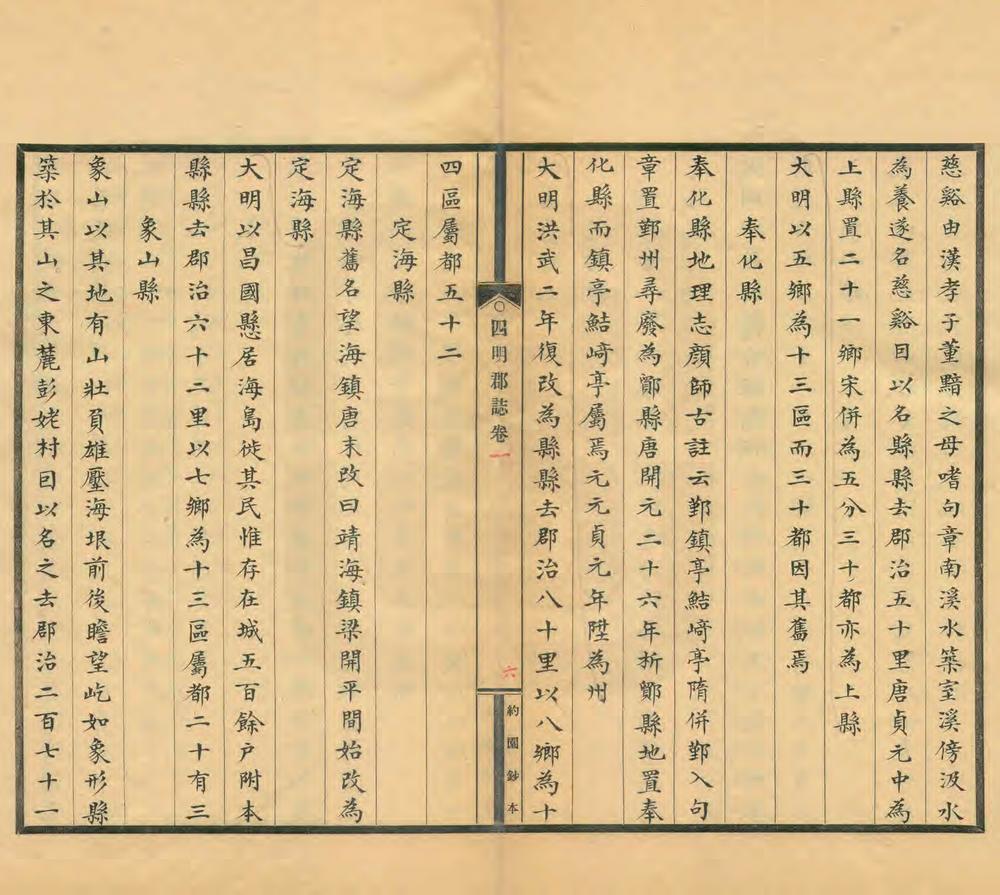 慈谿由漢孝子董黯之母嗜句章南溪水築室溪傍汲水
為養遂名慈谿囙以名縣縣去郡治五十里唐貞元中為
上縣置二十一鄉宋併為五分三十都亦為上縣
大明以五鄉為十三區而三十都因其舊焉
奉化縣
奉化縣地理志顔師古註云鄞鎮亭鮚崎亭隋併鄞入句
章置鄞州尋廢為鄮縣唐開元二十六年折鄮縣地置奉
化縣而鎮亭鮚崎亭屬焉元元貞元年陞為州
大明洪武二年復改為縣縣去郡治八十里以八鄉為十
四明郡誌卷一
六
約園鈔本
四區屬都五十二
定海縣
定海縣舊名望海鎮唐末改曰靖海鎮梁開平間始改為
定海縣
大明以昌國懸居海島徙其民惟存在城五百餘户附本
縣縣去郡治六十二里以七鄉為十三區屬都二十有三
象山縣
象山以其地有山壯負雄壓海垠前後瞻望屹如象形縣
築於其山之東麓彭姥村囙以名之去郡治二百七十一